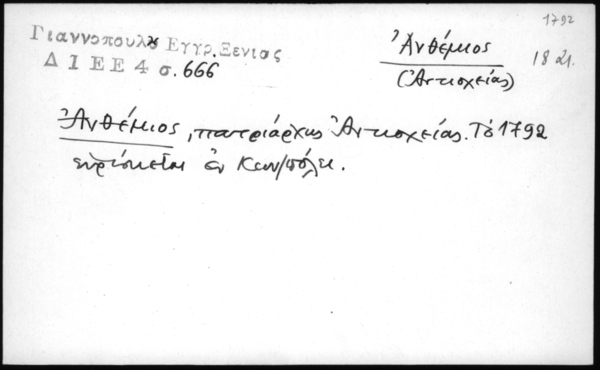 1792
Γιαννοπουλου Εγγρ. Ξενιας
Ἀνθέμιος
18 21.
Δ Ι Ε Ε 4 σ. 666
(Ἀντιοχείας)
Ἀνθέμιος, πατριάρχης Ἀντιοχείας. Τὸ 1792
εὑρίσκεται ἐν Κων/πόλει.